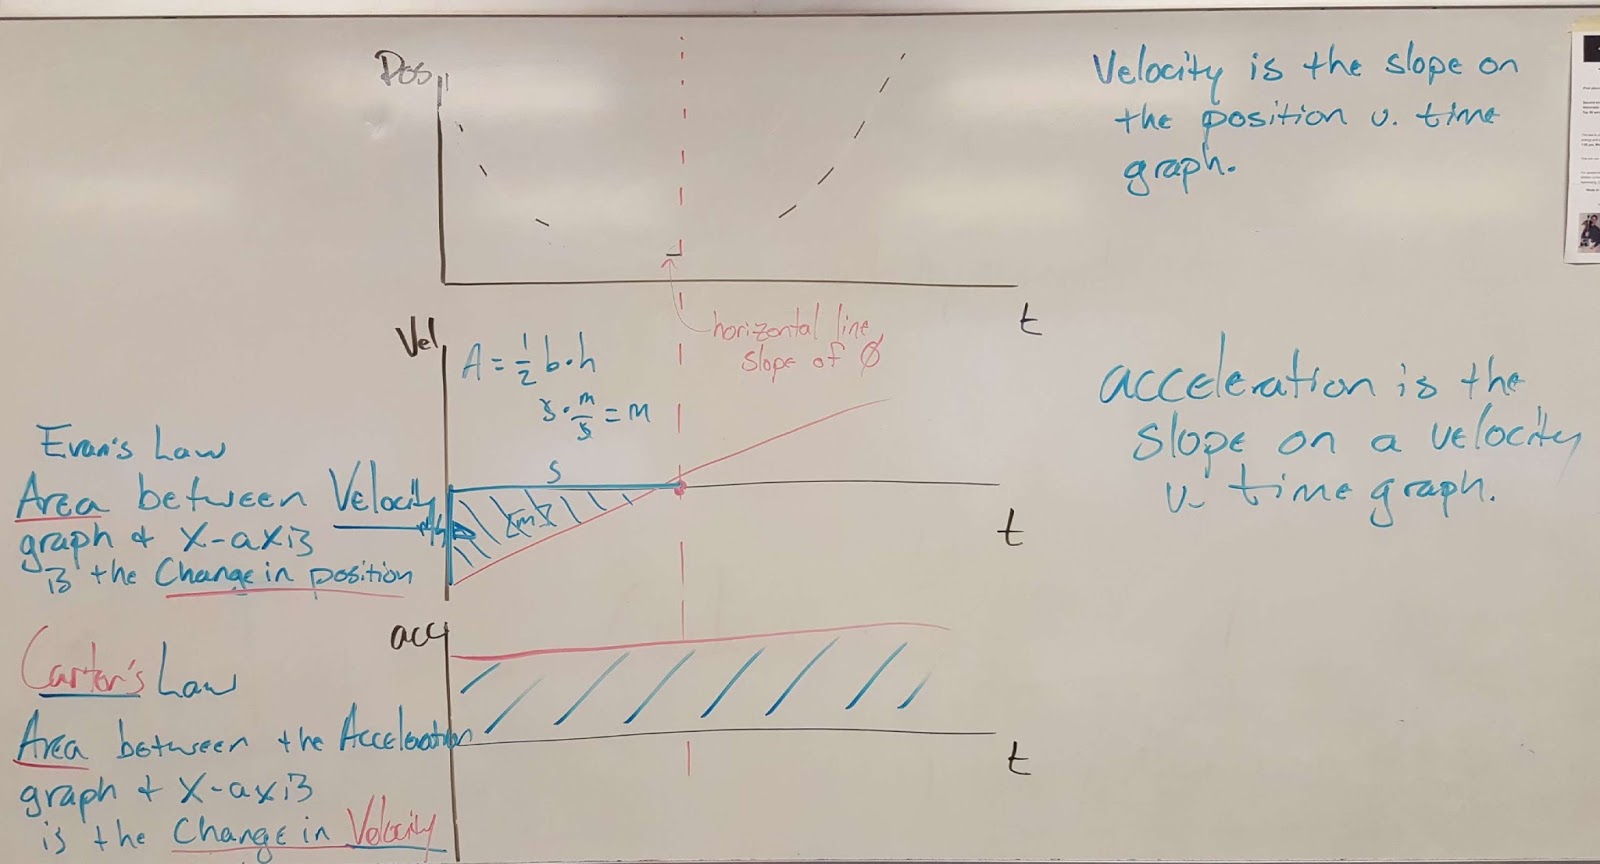 Pos
Velocity is the slope on
the position v. time
graph.
t
horizontal line,
slope of Ø
Vel
A = ½ b·h
s · m/s = m
acceleration is the
slope on a velocity
v. time graph.
Evan's Law
Area between Velocity
graph + X-axis
is the Change in position
s
m/s
[m]
t
acc
Carter's Law
Area between the Acceleration
graph + X-axis
is the Change in Velocity
t